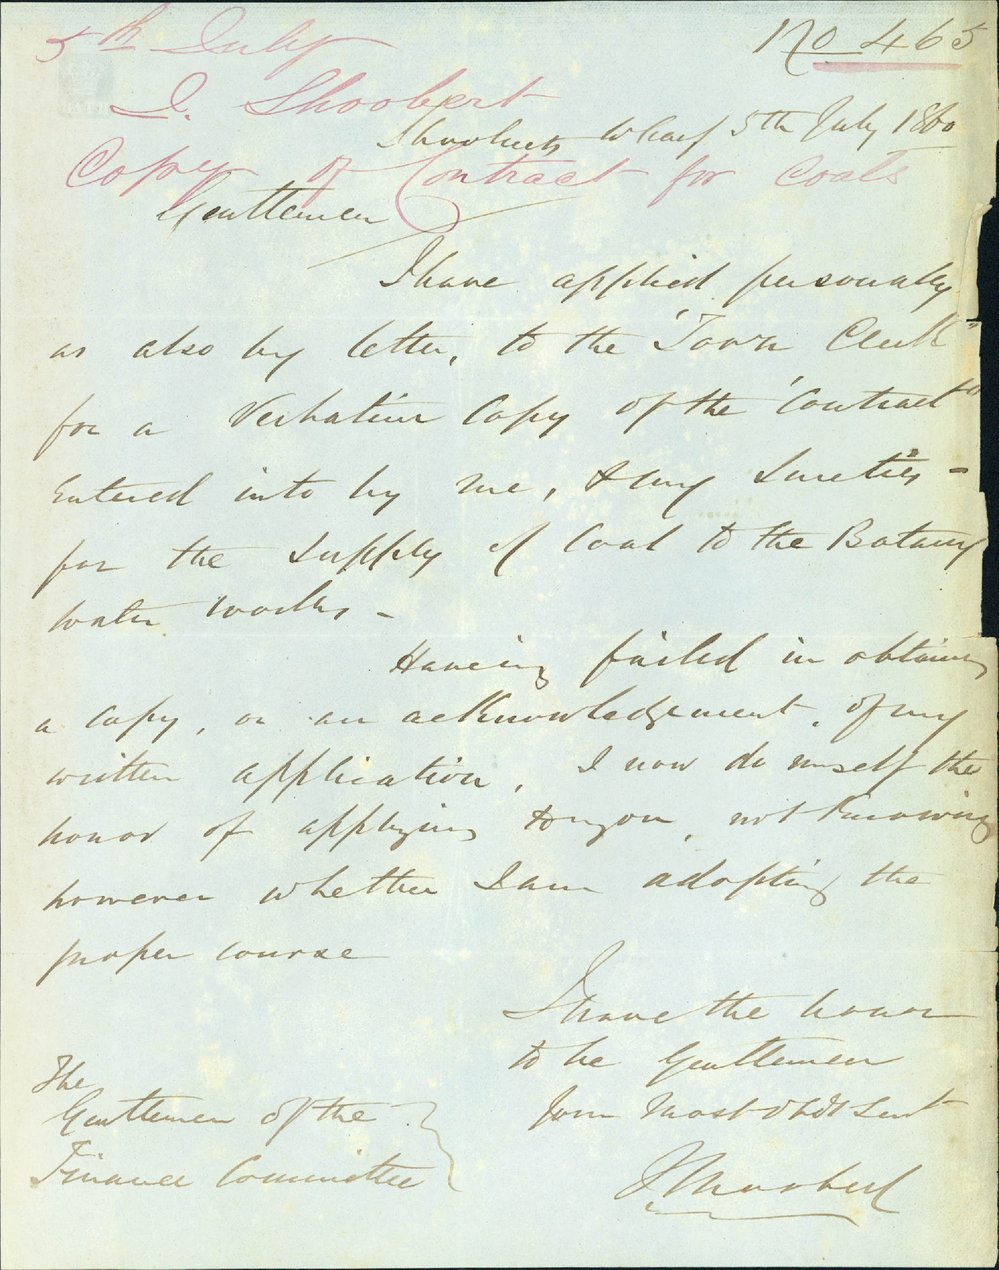 5th July
No 465
J. Shoobert
Shooberts Wharf 5th July 1860
Copy of Contract for Coals
Gentlemen
I have applied personally
as also by letter, to the "Town Clerk"
for a Verbatim Copy of the "Contract"
Entered into by me, & my Sureties -
for the Supply of Coal to the Botany
Water Works -
Having failed in obtaining
a Copy, or an acknowledgement, of my
written application, I now do myself the
honor of applying to you, not knowing
however whether I am adopting the
proper course
I have the honor
to be Gentlemen
Your Most Obdt Servt
J Shoobert
The
Gentlemen of the
Finance Committee